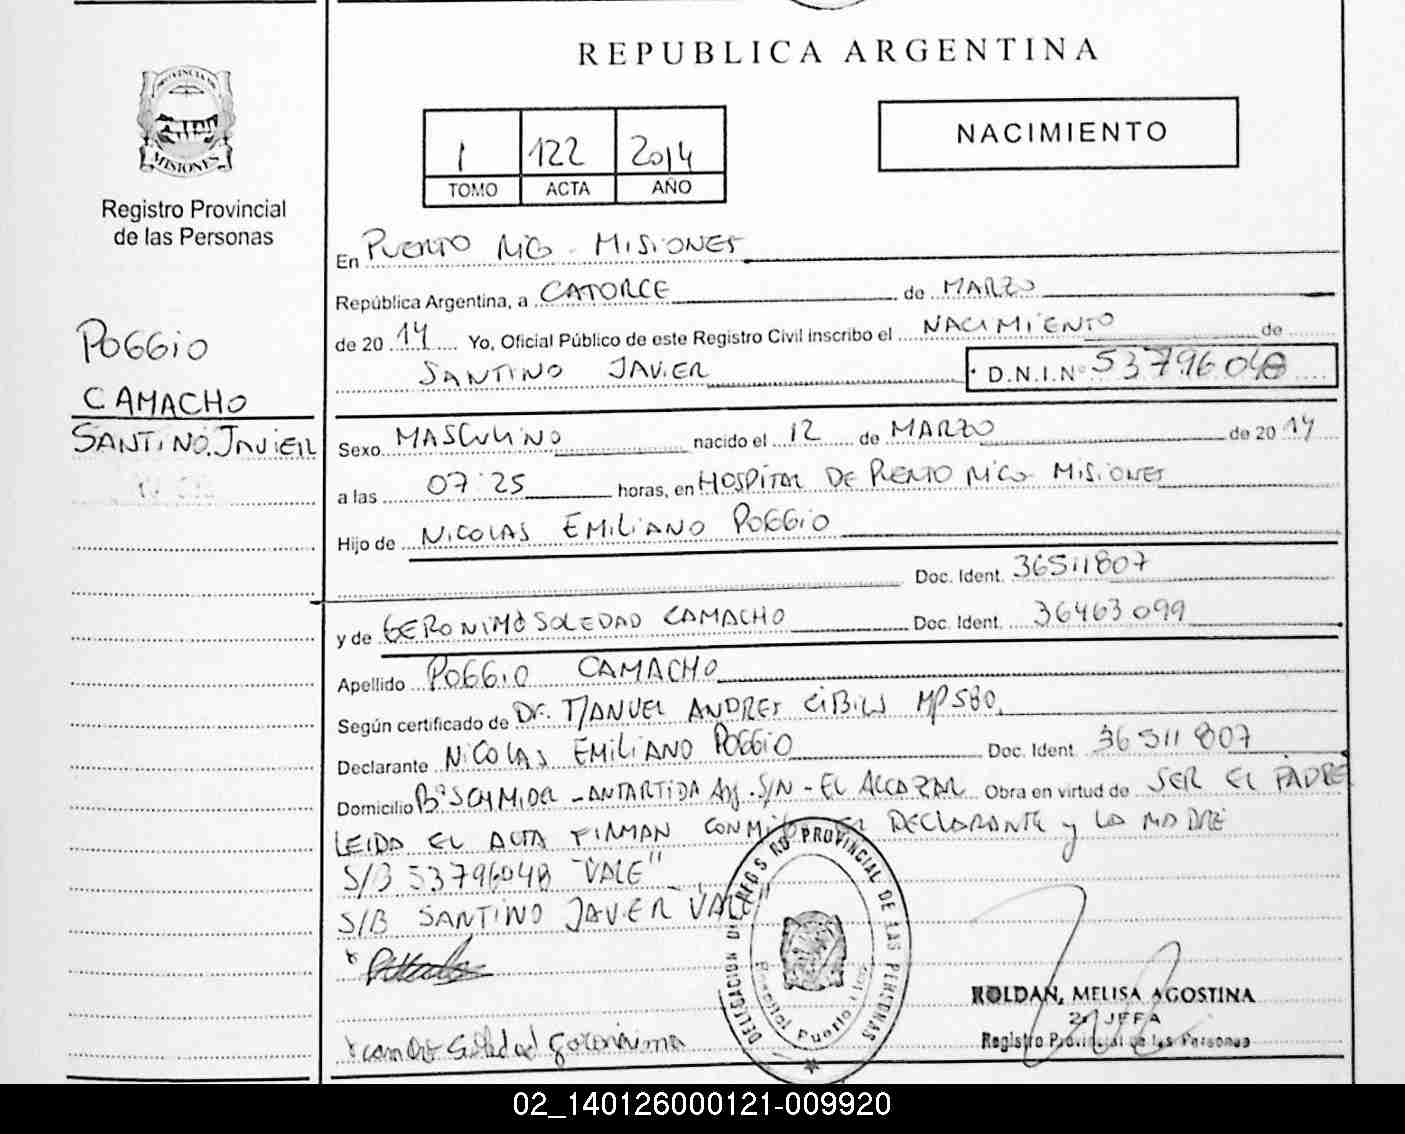 REPUBLICA ARGENTINA
1 122 2014
TOMO ACTA AÑO
NACIMIENTO
PROVINCIA DE
MISIONES
Registro Provincial
de las Personas
POGGIO
CAMACHO
SANTINO JAVIER
En PUERTO RICO - MISIONES
República Argentina, a CATORCE de MARZO
de 20 14 Yo, Oficial Público de este Registro Civil inscribo el NACIMIENTO de
SANTINO JAVIER D.N.I.Nº 53796048
Sexo MASCULINO nacido el 12 de MARZO de 20 14
a las 07:25 horas, en HOSPITAL DE PUERTO RICO MISIONES
Hijo de NICOLAS EMILIANO POGGIO
Doc. Ident. 36511807
y de GERONIMO SOLEDAD CAMACHO Doc. Ident. 36463099
Apellido POGGIO CAMACHO
Según certificado de Dr. MANUEL ANDRES CIBILS MP580
Declarante NICOLAS EMILIANO POGGIO Doc. Ident. 36511807
Domicilio Bº SCHMIDT - ANTARTIDA Arg. S/N - EL ALCAZAR Obra en virtud de SER EL PADRE
LEIDA EL ACTA FIRMAN CONMIGO EL DECLARANTE y LA MADRE
S/B 53796048 "VALE"
S/B SANTINO JAVIER VALE"
DELEGACION DEL REGISTRO PROVINCIAL DE LAS PERSONAS
Hospital Puerto Rico
ROLDAN, MELISA AGOSTINA
2º JEFA
Registro Provincial de las Personas
camacho Soledad geronima
02_140126000121-009920